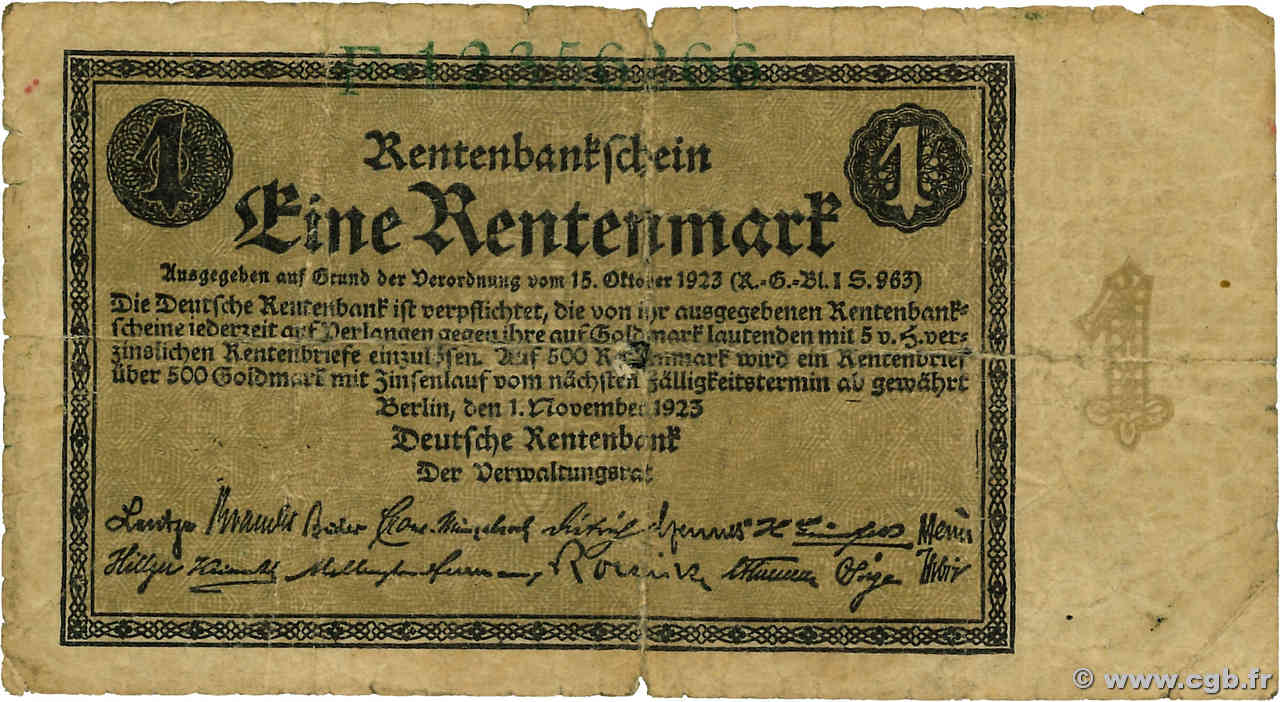 F 12356366
1
1
Rentenbankschein
Eine Rentenmark
Ausgegeben auf Grund der Verordnung vom 15. Oktober 1923 (R.-G.-Bl. I S. 963)
Die Deutsche Rentenbank ist verpflichtet, die von ihr ausgegebenen Rentenbank-
scheine jederzeit auf Verlangen gegen ihre auf Goldmark lautenden mit 5 v. H. ver-
zinslichen Rentenbriefe einzulösen. Auf 500 Rentenmark wird ein Rentenbrief
über 500 Goldmark mit Zinsenlauf vom nächsten Fälligkeitstermin ab gewährt
Berlin, den 1. November 1923
Deutsche Rentenbank
Der Verwaltungsrat
Lentze Brandes Bader
Hillger
1
© www.cgb.fr